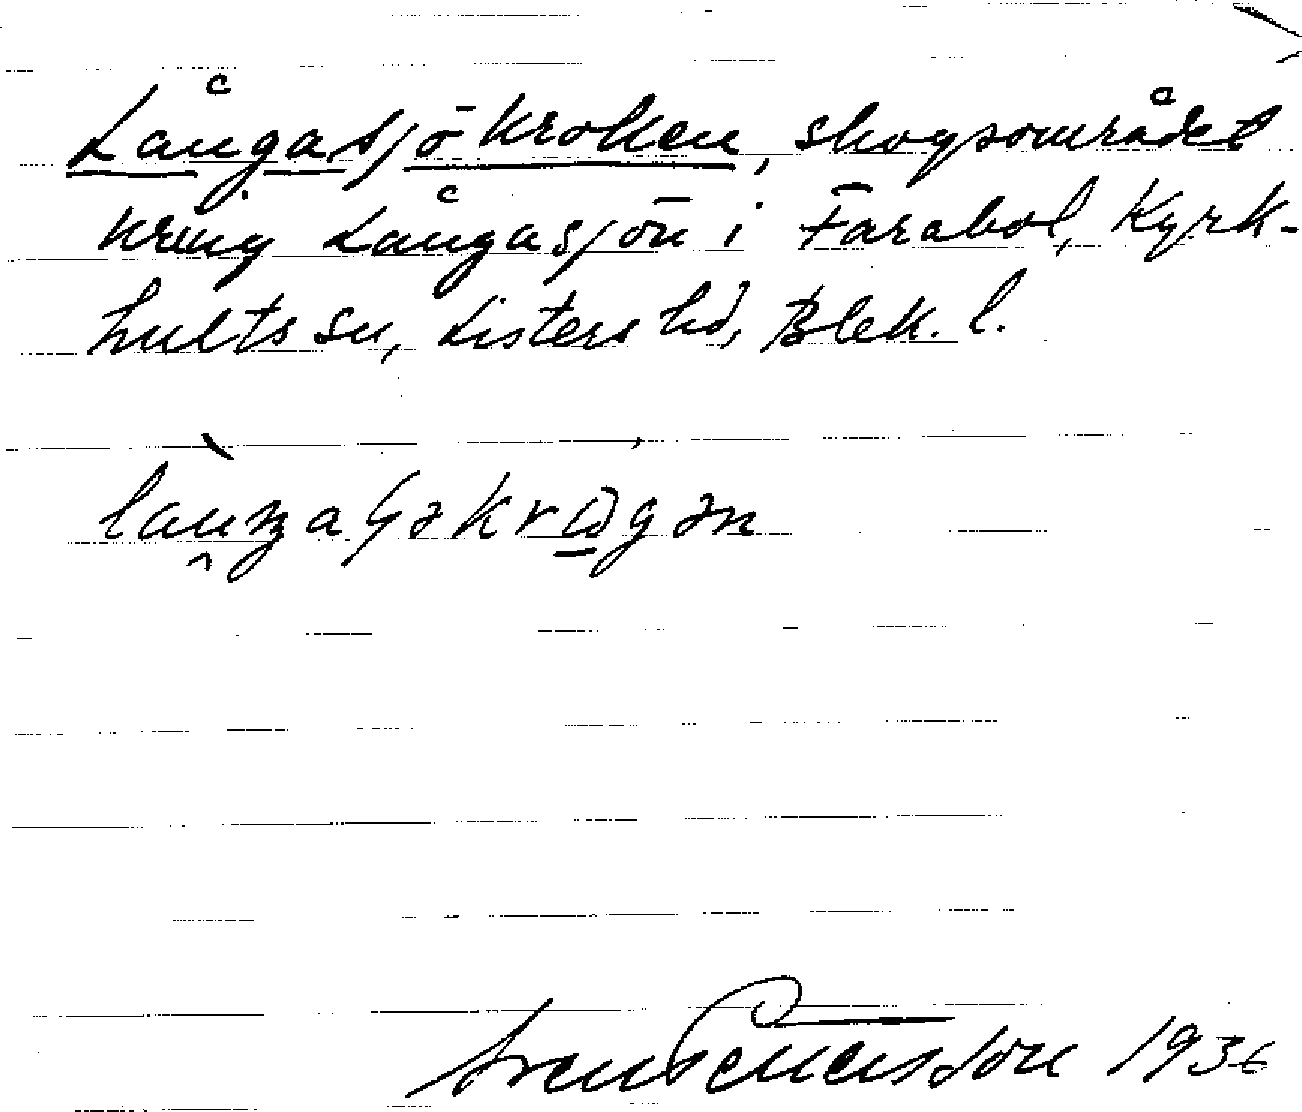 Långasjökroken, skogsområdet
kring Långasjön i Farabol, Kyrk-
hults sn, Listers hd, Blek. l.
Sven Benson 1936